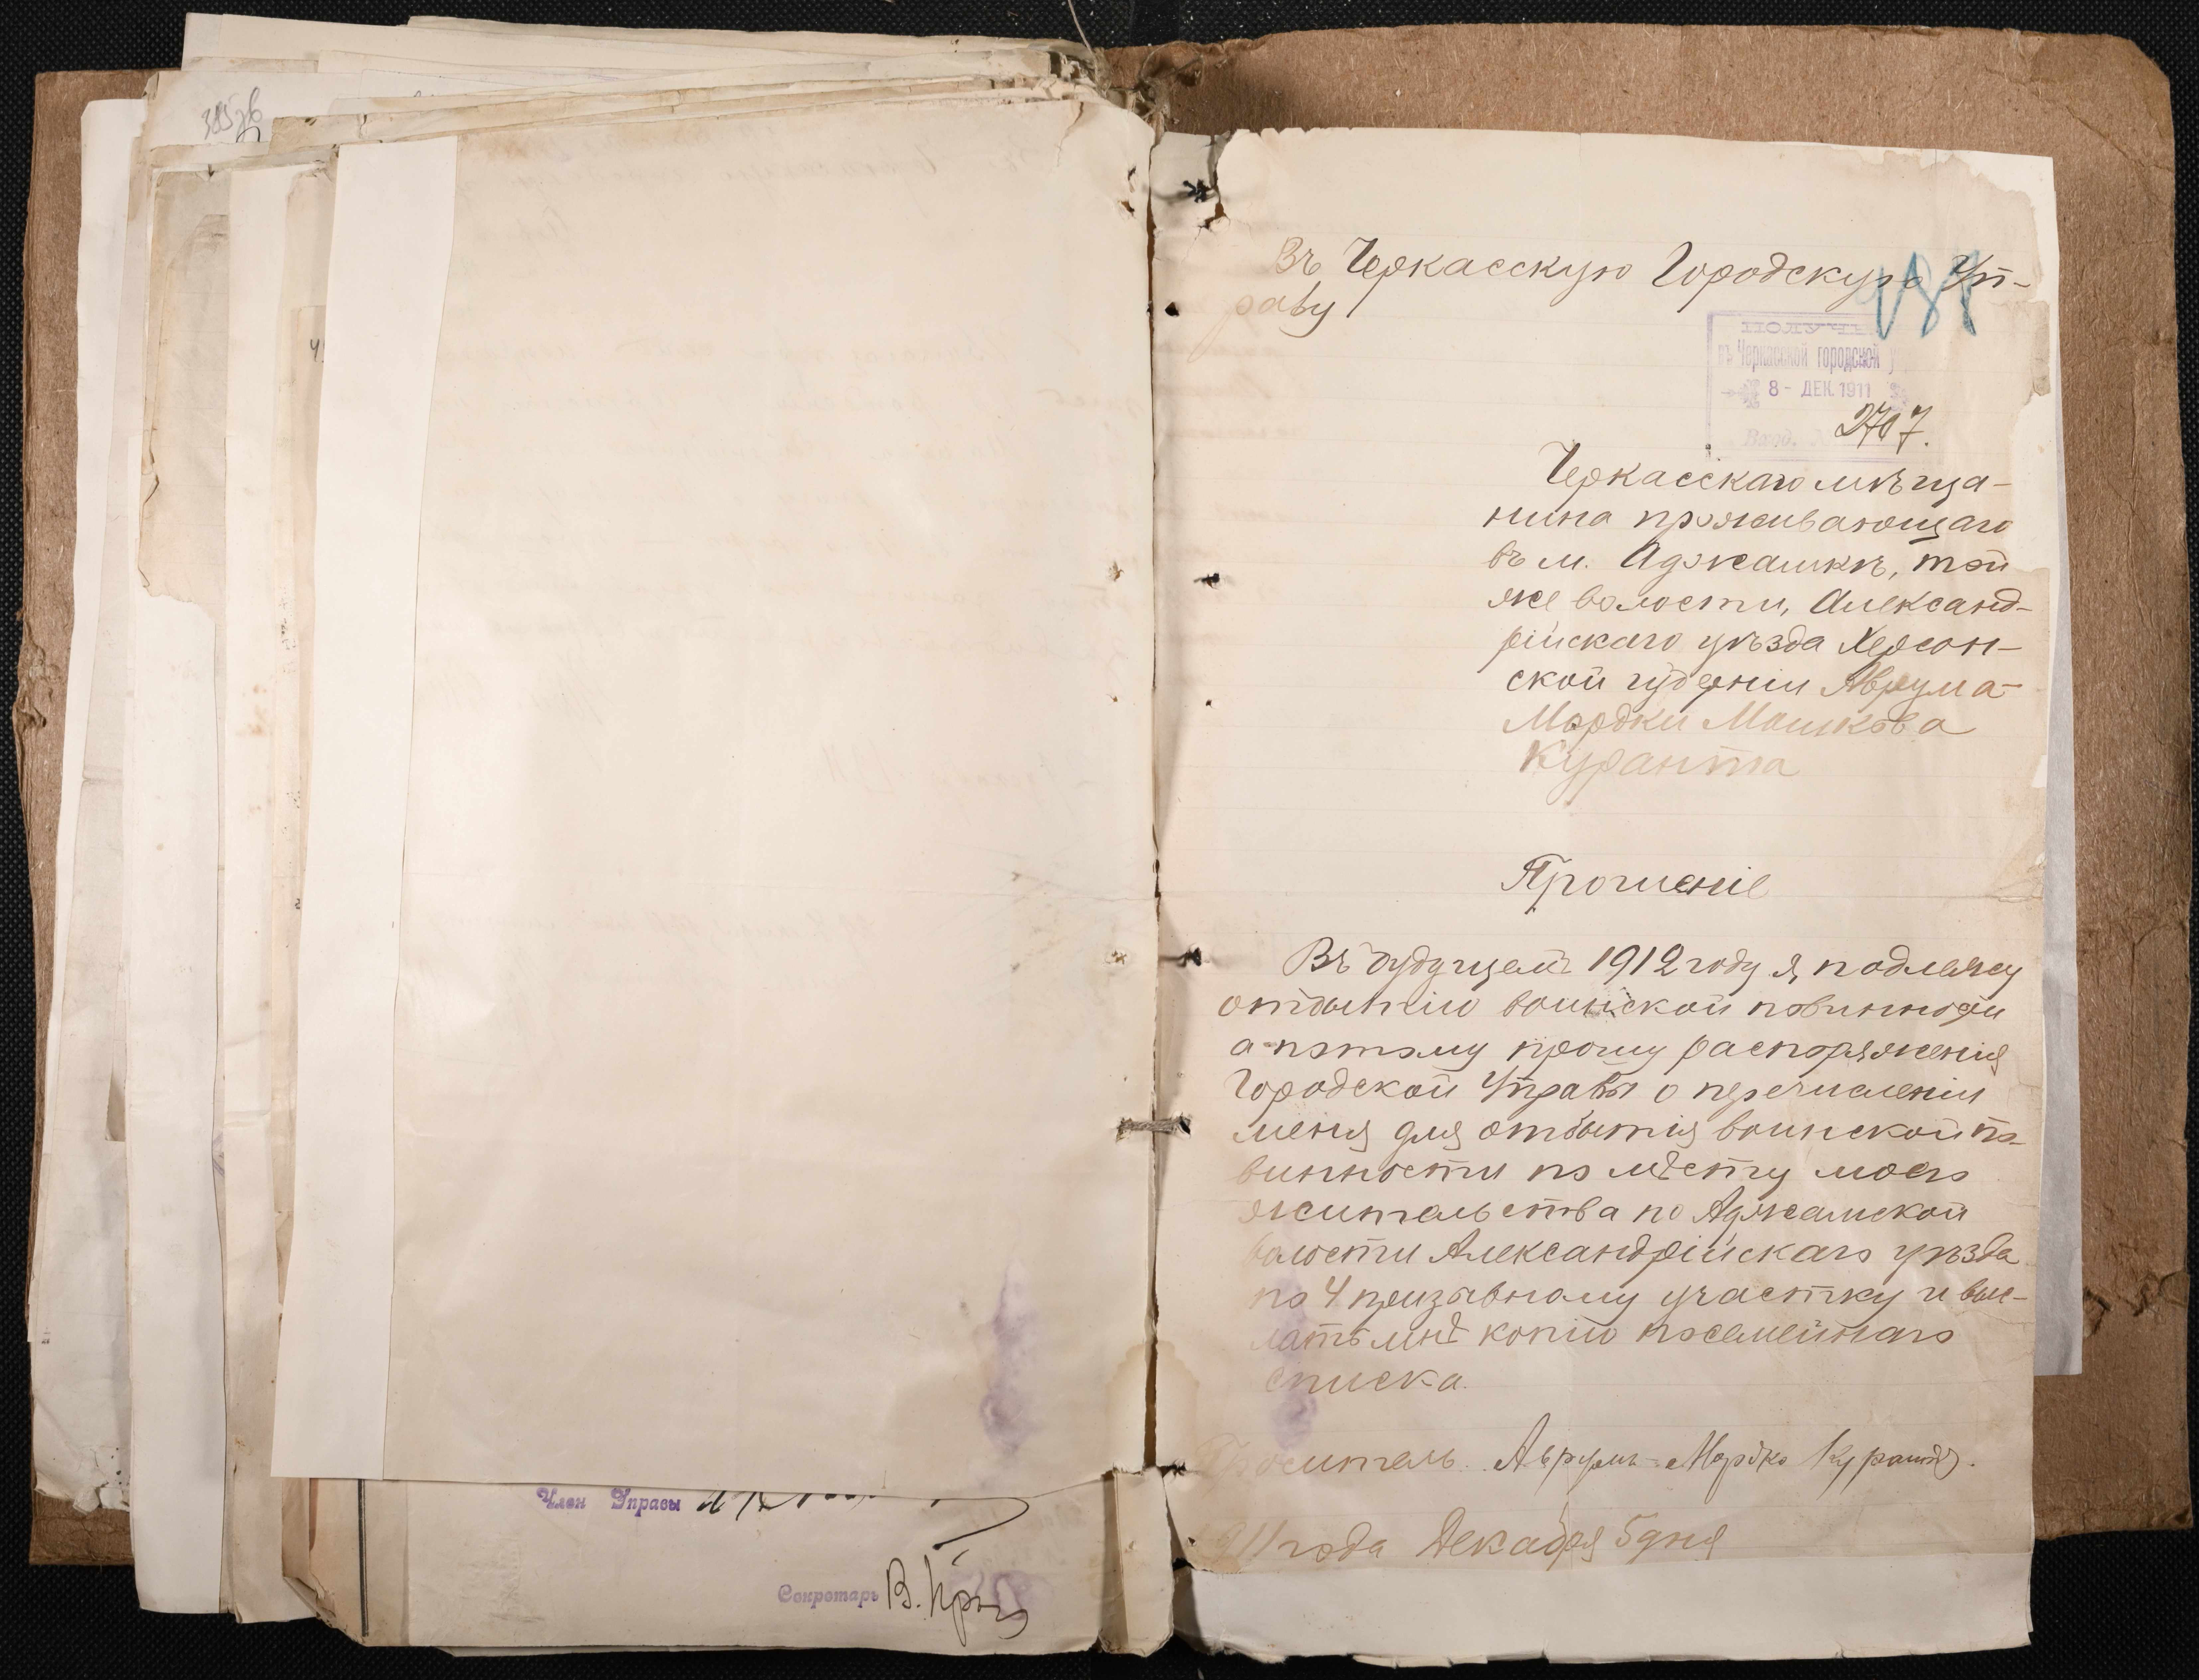 385 зв
Членъ Управы
Секретарь В.
Въ Черкасскую Городскую Уп-
раву
въ Черкасской городской у
8 - ДЕК. 1911
Вход. 2707.
Черкасскаго мѣща-
нина проживающаго
въ м. Аджамкѣ, той
же волости, Александ-
рійскаго уѣзда Херсон-
ской губерніи Аврума-
Мордки Мошкова
Куранта
Прошеніе
Въ будущемъ 1912 году я, подлежу
отбытію воинской повинности
а потому прошу распоряженія
Городской Управы о перечисленіи
меня для отбытія воинской по-
винности по мѣсту моего
жительства по Аджамской
волости Александрійскаго уѣзда
по 4 призывному участку и выс-
лать мнѣ копію посемейнаго
списка.
Проситель Аврумъ-Мордко Курантъ.
1911 года Декабря 5 дня